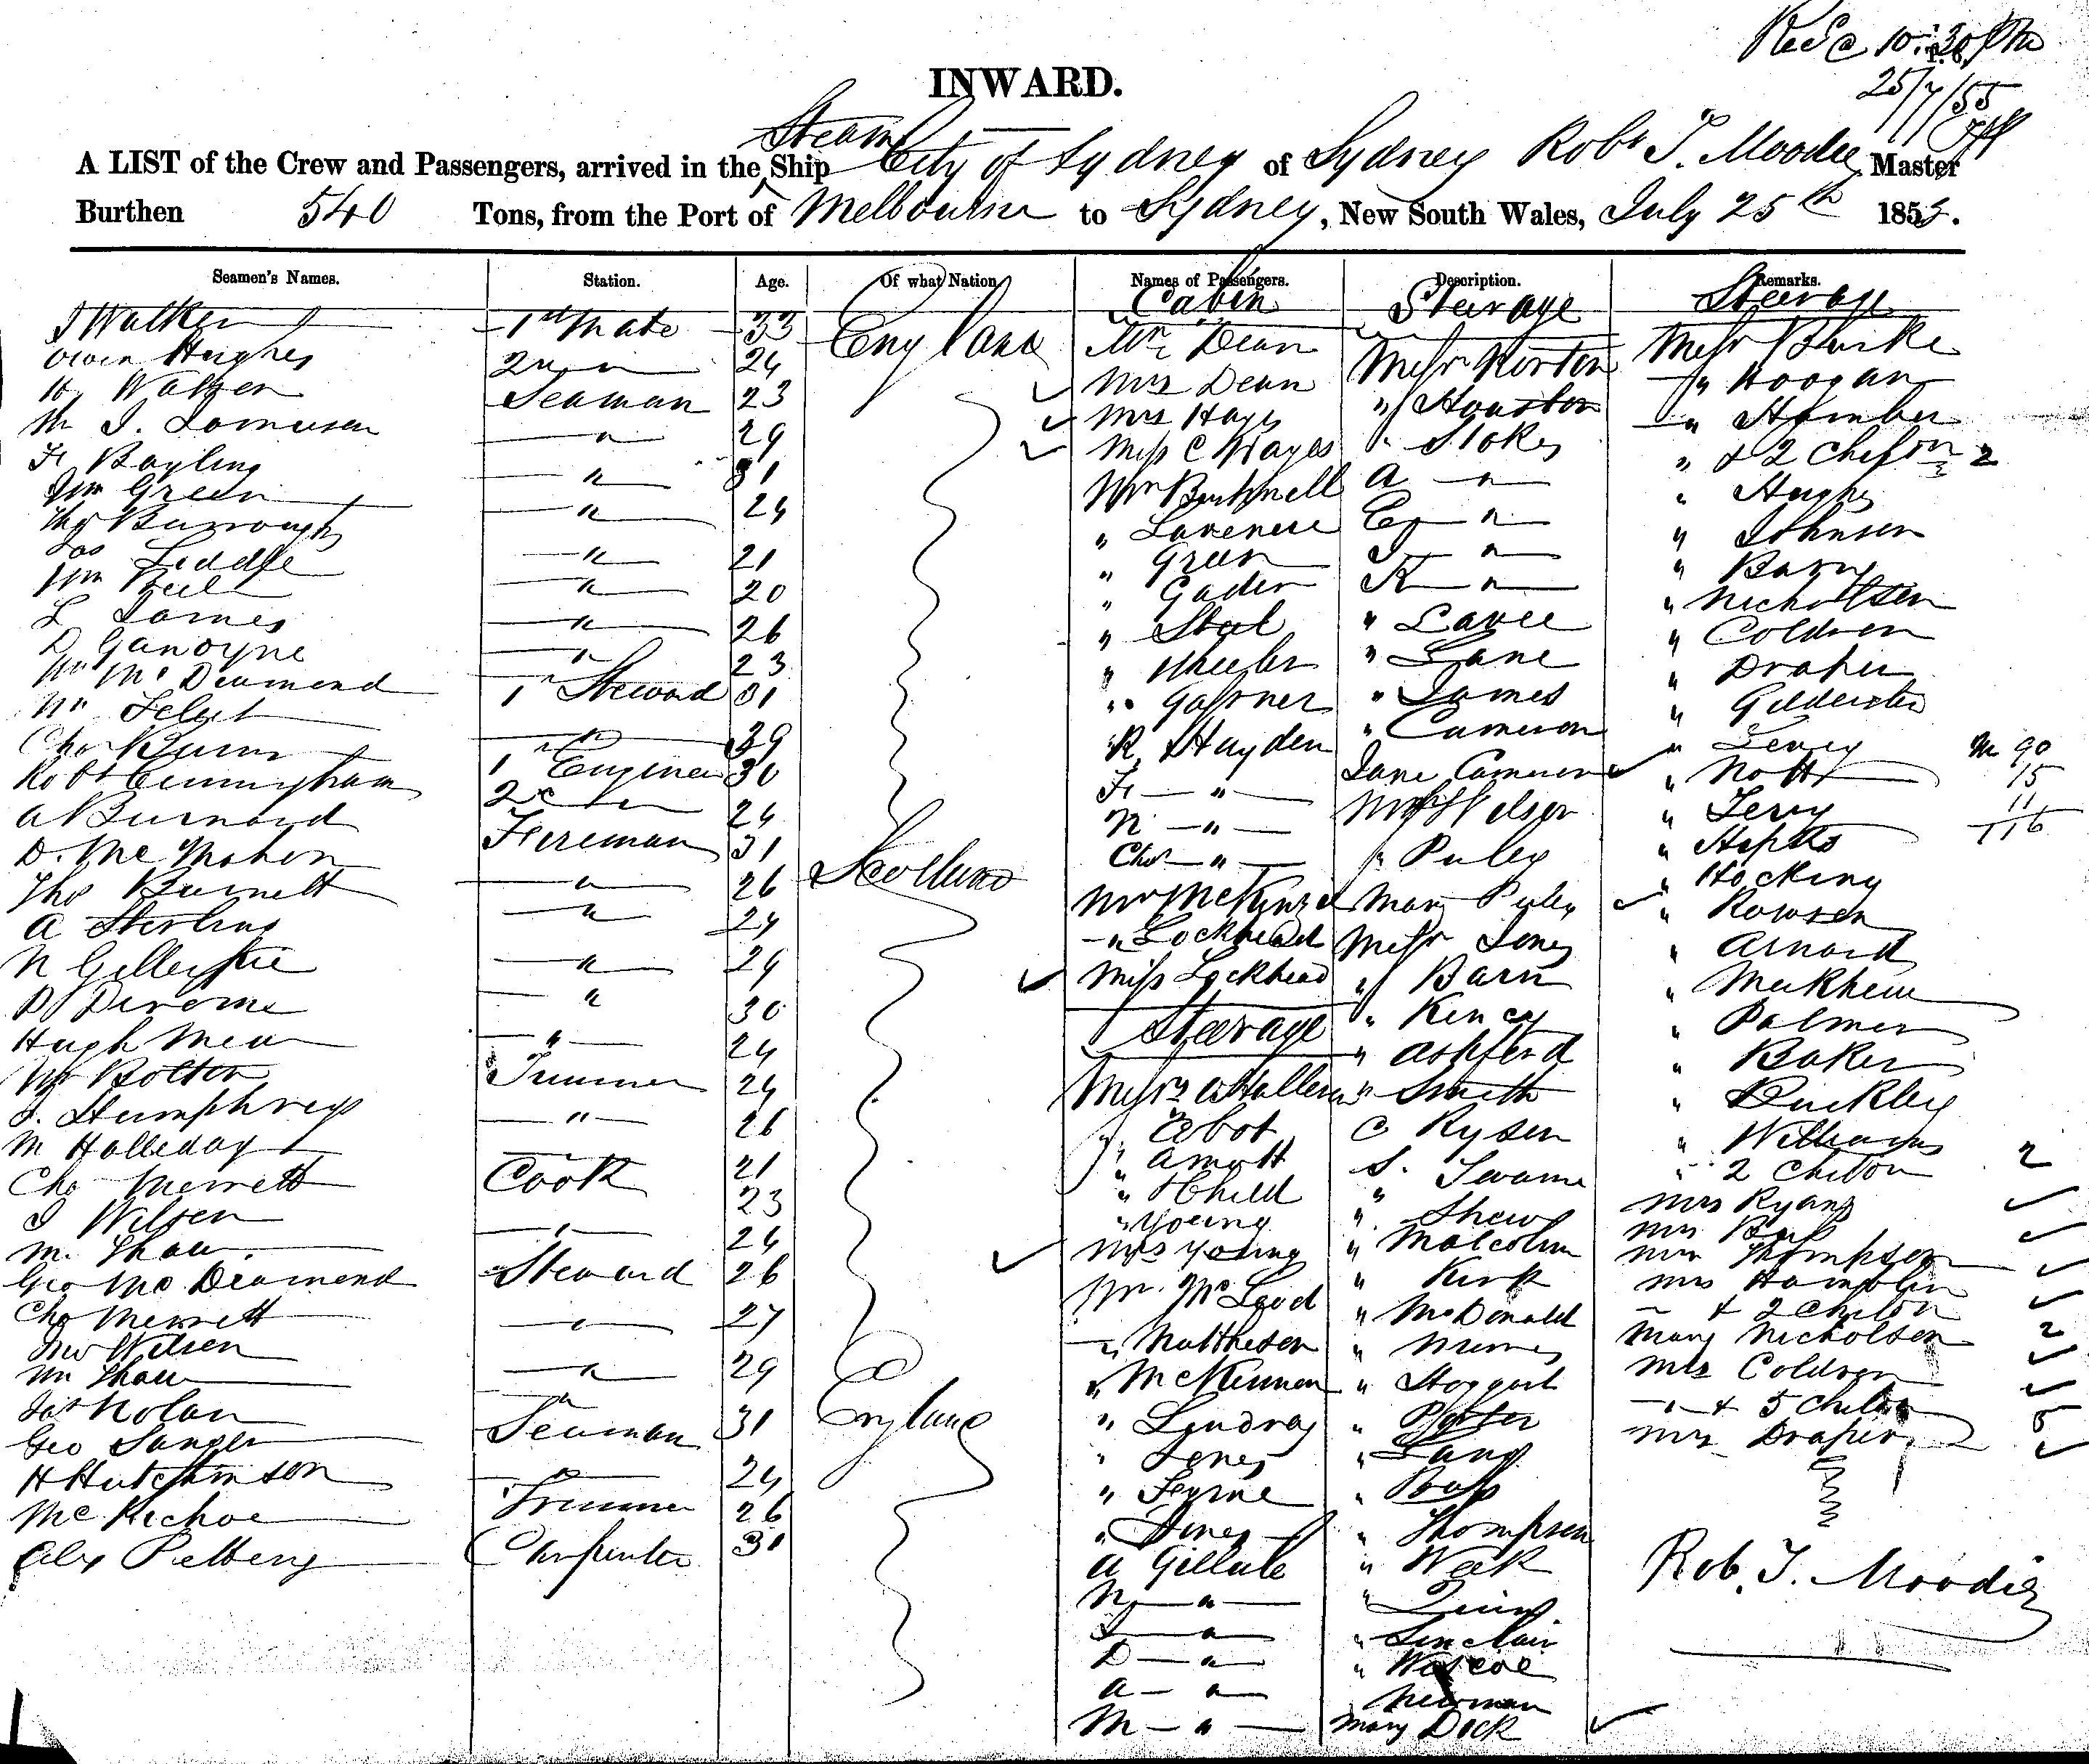 Rec @ 10.30 Pm
25/7/55
INWARD.
Steam
A LIST of the Crew and Passengers, arrived in the Ship City of Sydney of Sydney Robt T. Moodie Master
Burthen 540 Tons, from the Port of Melbourne to Sydney, New South Wales, July 25th 1855.
Seamen's Names. Station. Age. Of what Nation Names of Passengers. Description. Remarks.
Cabin Steerage Steerage
J Walker 1st Mate 33 England Mr Dean Messr Horton Messr Burke
Owen Hughes 2 " " 24 Mrs Dean " Houston " Hoogan
H. Walker Seaman 23 Mrs Hayes " Stokes " Homber
" 29 Miss C Hayes A " " & 2 Children 2
Fr Bayling " 31 Mr Bushnell C " " Hughes
Wm Green " 24 " Lawrence J " " Johnson
Thos Burrough " 21 " Green K " " Barry
Jas Liddle " 20 " Gader " Lavee " Nicholson
Wm Bell " 26 " Steel " Lane " Coldren
L James " 23 " Wheeler " James " Draper
D Ganoyne 1st Steward 31 " Gardner " Cameron
Wm McDermend " 39 R. Hayden Jane Cameron
Chas Burns 1st Engineer 30 Fr " " Nott M 90
Robt Cunningham 2nd " 24 N " " Terry 15
A Burnard Fireman 31 Scotland Chas " " Puley 11
D. McMahon " 26 Mr McKenzie Mary Puley " Hocking 116
Thos Burnett " 24 " Lockhead Messr Jones " Rowsen
A Sterling " 29 Miss Lockhead " Barn " Arnold
N Gillespie " 30 Steerage " Kency
D Derome " 24 " Ashford " Palmer
Hugh Mea Trimmer 24 " Smith " Baker
Wm Bolton " 26 " Abot C Rysen " Buckley
J. Humphreys 21 " Amott S. Swame " Williams
M Halleday Cook 23 " Child " Shew " 2 Children 2
Chas Merrett " 24 " Young " Malcolm Mrs Ryans
J Wilson Steward 26 Mrs Young " Kirk
M. Shaw " 27 Mr McLeod " McDonald Mrs Thompson
Geo McDermend " 29 " Mattheson Mrs Hamplin
Chas Merrett Seaman 31 England " McKinnon " Hoggart & 2 Children 2
Jno Wilson " 24 " Lindray " Porter Mary Nicholson
Wm Shaw Trimmer 26 " Jones " Lang Mrs Coldren
Jas Nolan Carpenter 31 " Ross & 5 Children 5
Geo Sanger " Jones " Thompson Mrs Draper
H Hutchinson A Gillate " Week
McKechoe N " " Quin
Alex Pelberg J " " Sinclair
D " " Roscoe
A " Newman
M " Mary Dock
Rob. T. Moodie